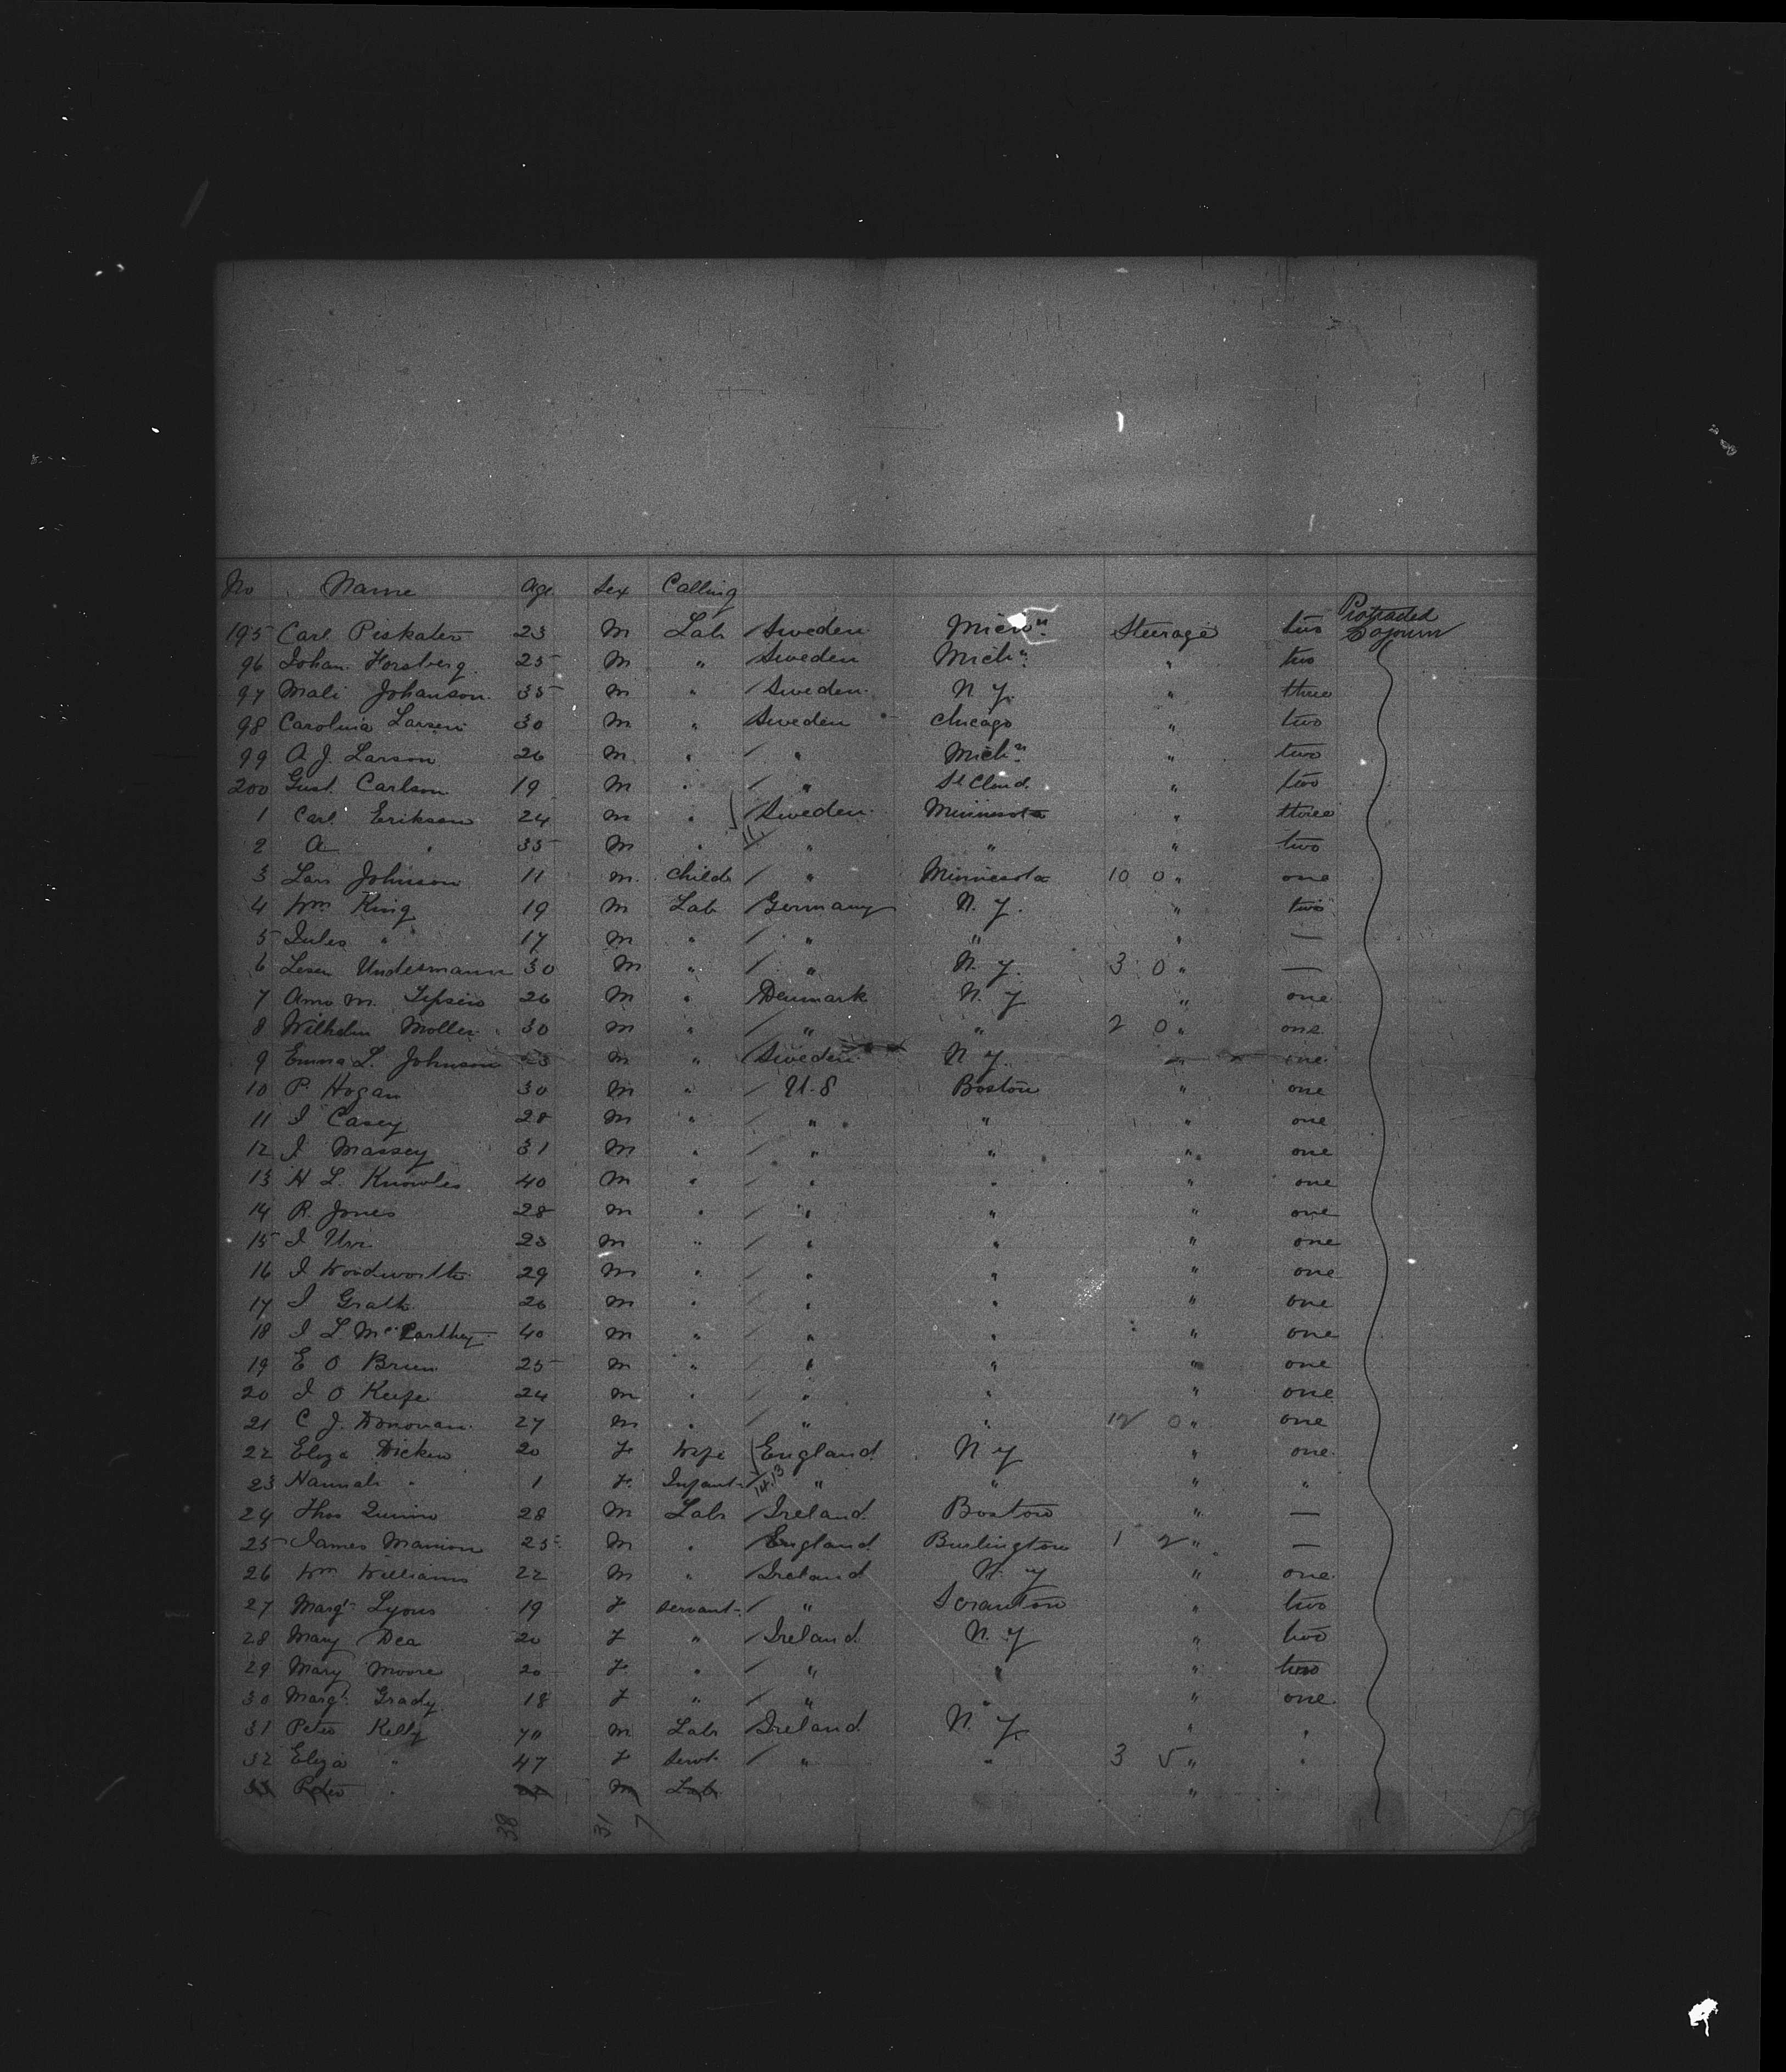 No Name Age Sex Calling
Protracted
195 Carl Piskater 23 M Lab / Sweden Mich n. Steerage two Sojourn
96 Johan Forsberg 25 M " / Sweden Mich n. " two
97 Mali Johanson 35 M " / Sweden N. Y. " three
98 Carolina Larsen 30 M " Sweden Chicago " two
99 A J. Larson 26 M " / " Mich n. " two
200 Gust. Carlson 19 M " / " St Cloud " two
1 Carl Erikson 24 M " / Sweden Minnesota " three
2 A " 35 M " 11 " " " two
3 Lars Johnson 11 M. Child / " Minnesota 10 0 " one
4 Wm King 19 M Lab / Germany N. Y. " two
5 Jules " 17 M " / " " " —
6 Undermann 30 M " / " N. Y. 3 0 " —
7 M. 26 M " / Denmark N. Y " one
8 Wilhelm Moller 30 M " / " " 2 0 " one
9 Emma L. Johnson 23 M " / Sweden N Y. " one
10 P. Hogan 30 M " / U.S Boston " one
11 J Casey 28 M " / " " " one
12 J Massey 31 M " / " " " one
13 H L. Knowles 40 M " / " " " one
14 R. Jones 28 M " / " " " one
15 J 23 M " / " " " one
16 J Woodworth 29 M " / " " " one
17 J 26 M " / " " " one
18 J L McCarthy 40 M " / " " " one
19 E O Brien 25 M " / " " " one
20 J O Keefe 24 M " / " " " one
21 C J. Donovan 27 M " / " " 12 0 " one
22 Eliza Dicken 20 F Wife England N Y " one
23 Hannah " 1 F. Infant / 14.13 " " " "
24 Thos Quinn 28 M Lab / Ireland Boston " —
25 James Manion 25 M " / England Burlington 1 2 " —
26 Wm Williams 22 M " / Ireland N. Y " one
27 Margt Lyons 19 F Servant / " Scranton " two
28 Mary Dea 20 F " / Ireland N. Y " two
29 Mary Moore 20 F " / " " " two
30 Margt Grady 18 F " / " " " one
31 Peter Kelly 40 M Lab / Ireland N. Y. " "
32 Eliza " 47 F Servt / " " 3 5 " "
33 Peter " M Lab "
38 31 7